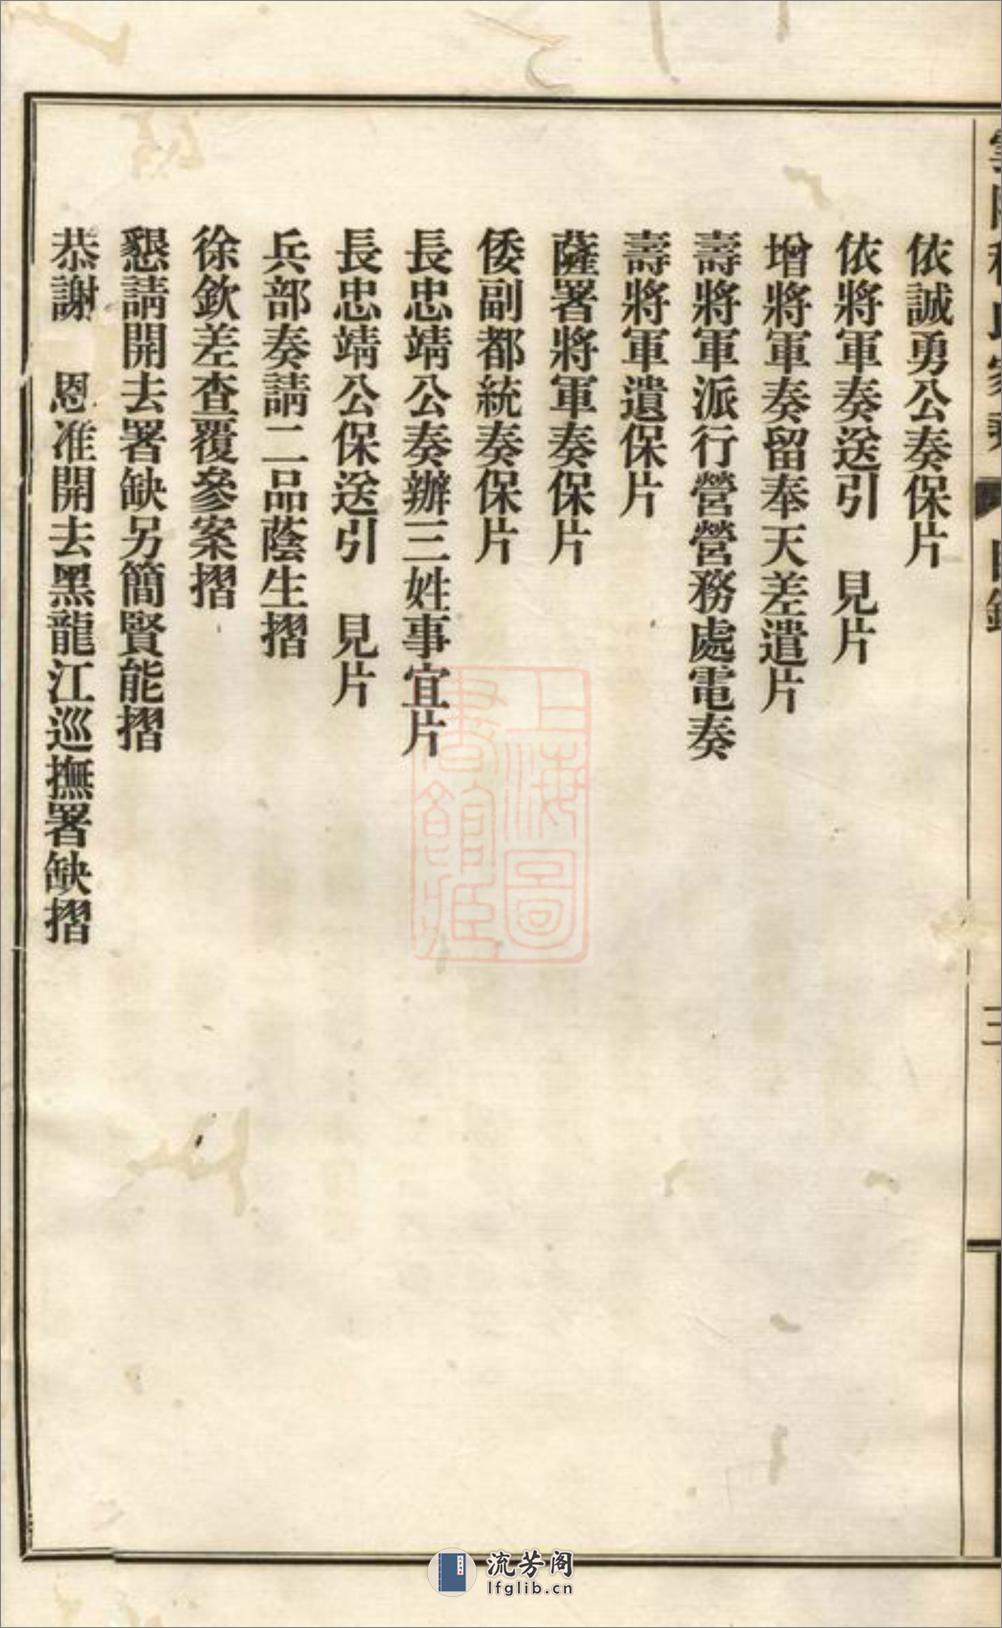 依誠勇公奏保片
依將軍奏送引　見片
增將軍奏留奉天差遣片
壽將軍派行營營務處電奏
壽將軍遺保片
薩署將軍奏保片
倭副都統奏保片
長忠靖公奏辦三姓事宜片
長忠靖公保送引　見片
兵部奏請二品蔭生摺
徐欽差查覆參案摺
懇請開去署缺另簡賢能摺
恭謝　恩准開去黑龍江巡撫署缺摺
上海圖
書館藏
流芳阁
lfglib.cn